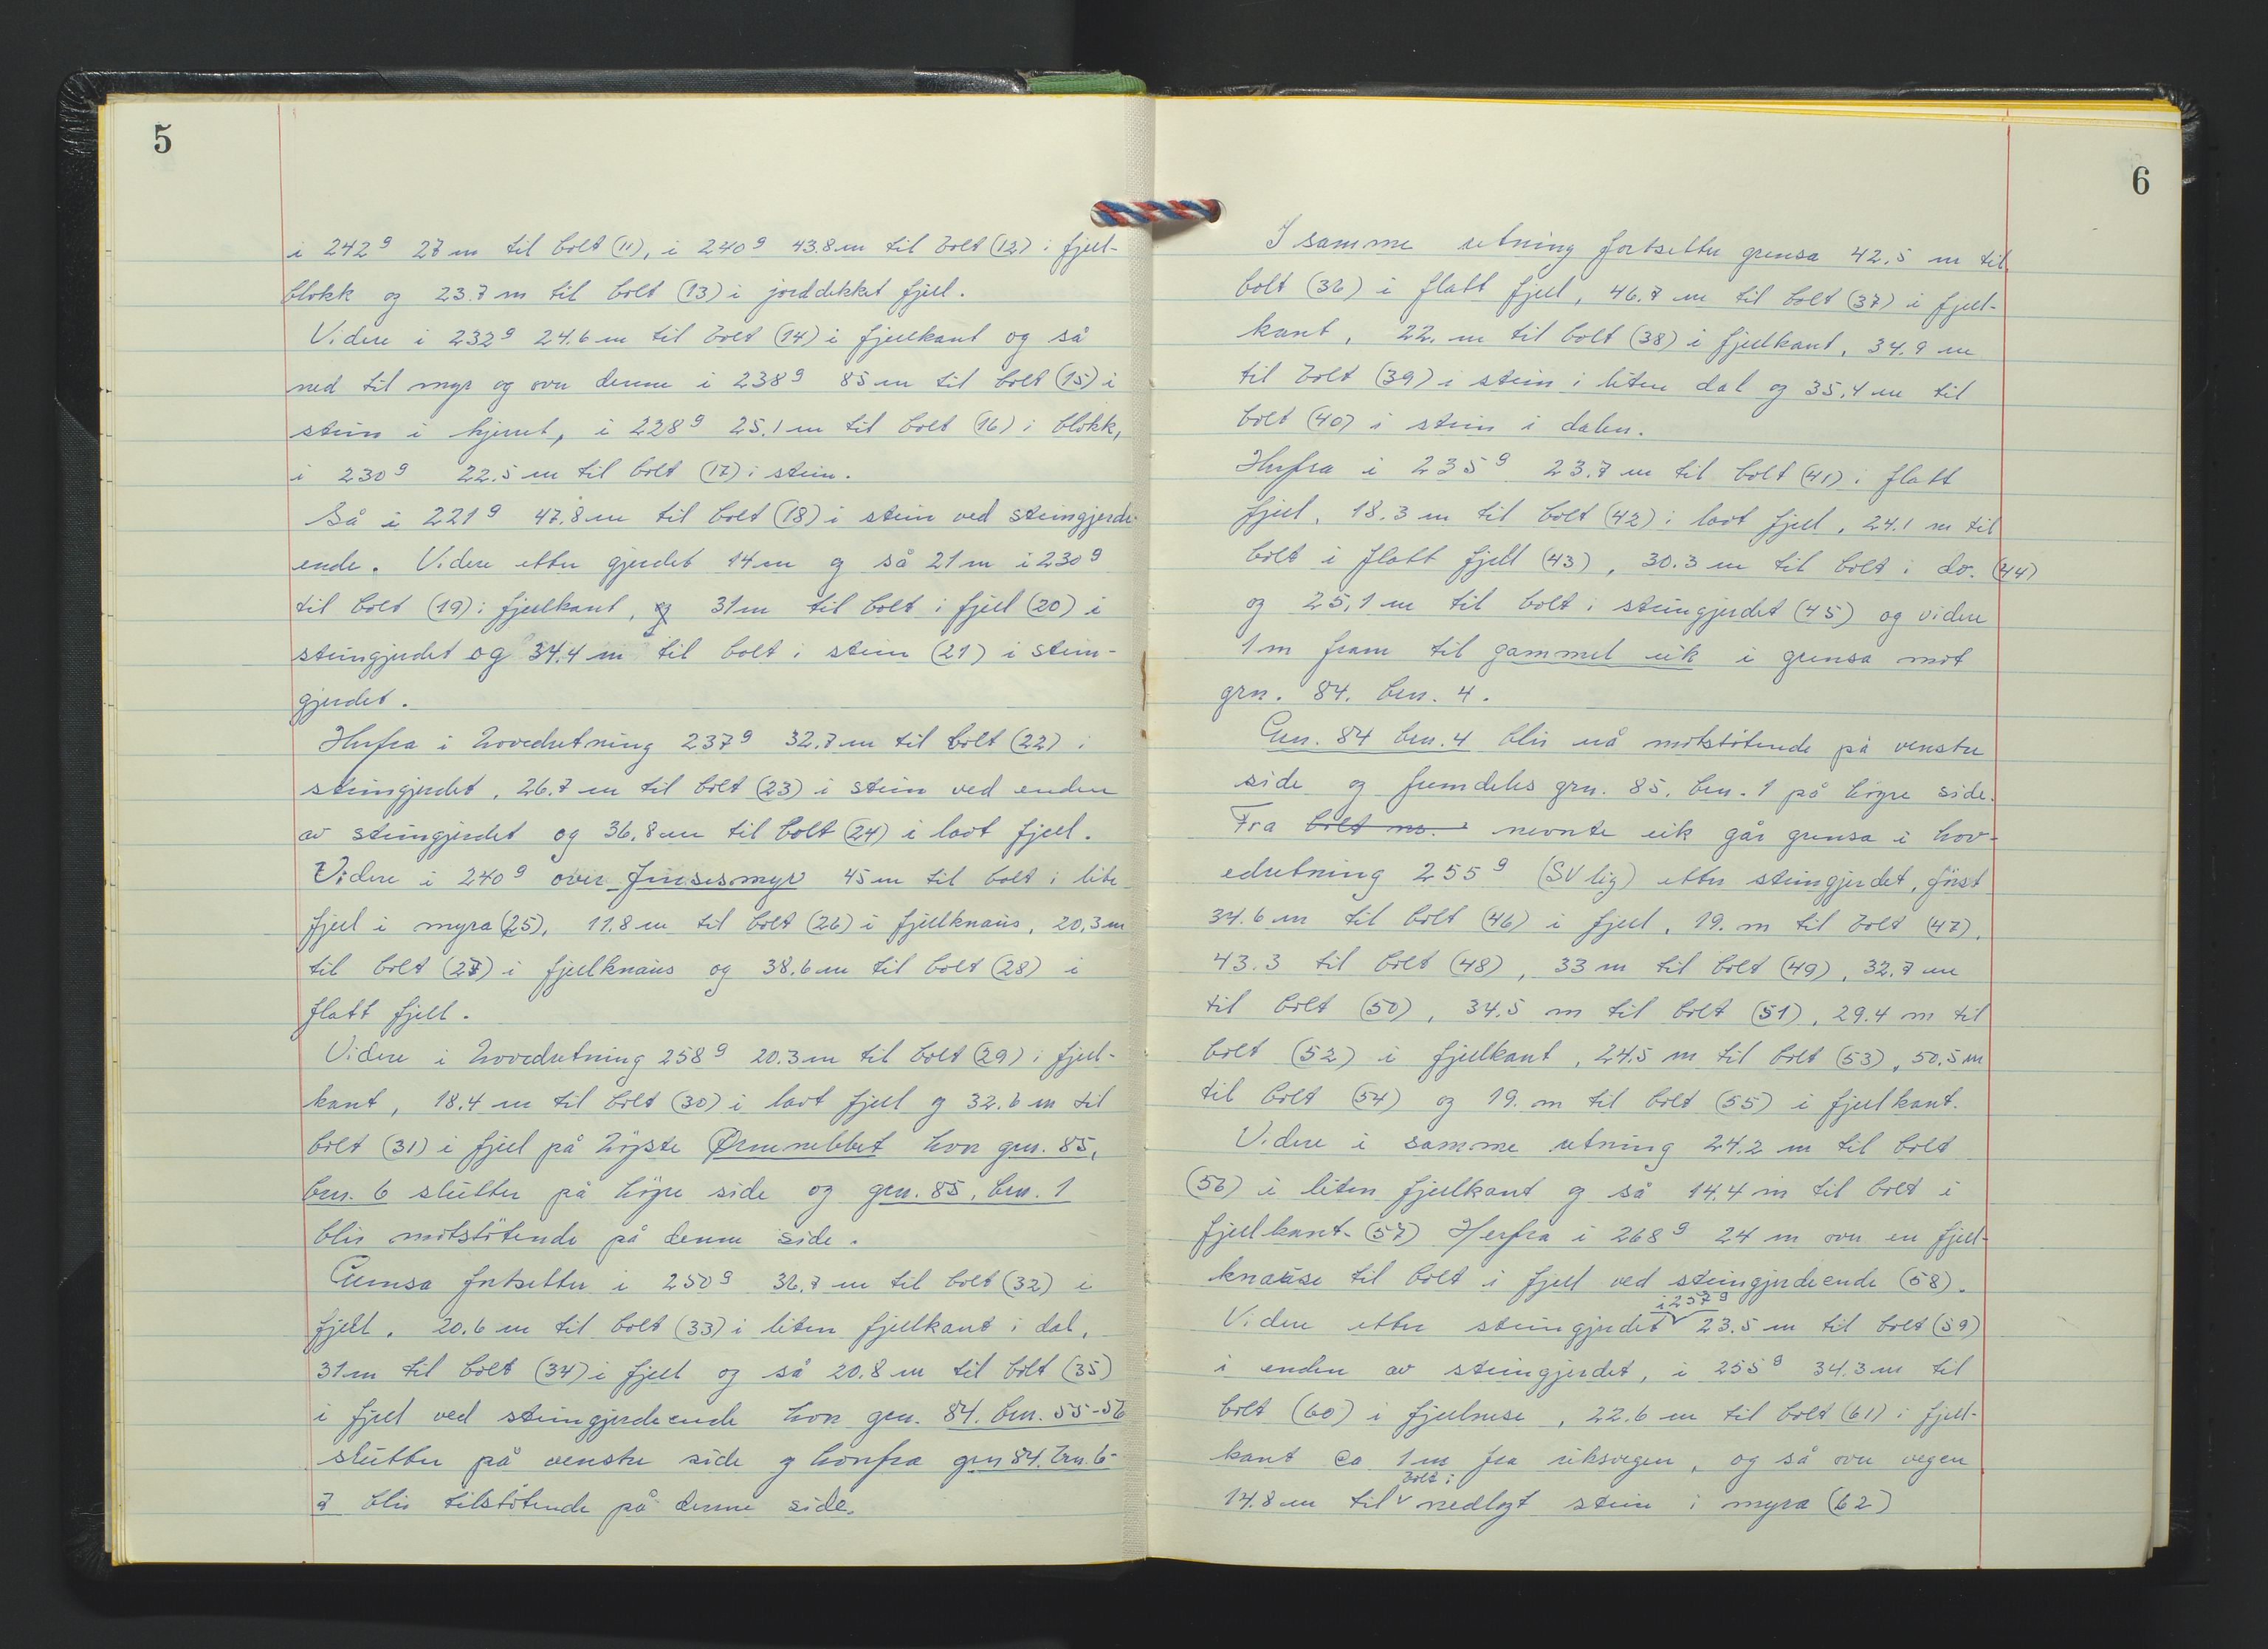 5
i 242g 27 m til bolt (11), i 240g 43.8 m til bolt (12) i fjell-
blokk og 23.7 m til bolt (13) i jorddekket fjell.
Videre i 232g 24.6 m til bolt (14) i fjellkant og så
ned til myr og over denne i 238g 85 m til bolt (15) i
stein i kjerret, i 228g 25.1 m til bolt (16) i blokk,
i 230g 22.5 m til bolt (17) i stein.
Så i 221g 47.8 m til bolt (18) i stein ved steingjerde-
ende. Videre etter gjerdet 14 m og så 21 m i 230g
til bolt (19) i fjellkant, og 31 m til bolt i fjell (20) i
steingjerdet og 34.4 m til bolt i stein (21) i stein-
gjerdet.
Herfra i hovedretning 237g 32.7 m til bolt (22) i
steingjerdet, 26.7 m til bolt (23) i stein ved enden
av steingjerdet og 36.8 m til bolt (24) i lavt fjell.
Videre i 240g over Jinsesmyr 45 m til bolt i lite
fjell i myra (25), 11.8 m til bolt (26) i fjellknaus, 20.3 m
til bolt (27) i fjellknaus og 38.6 m til bolt (28) i
flatt fjell.
Videre i hovedretning 258g 20.3 m til bolt (29) i fjell-
kant, 18.4 m til bolt (30) i lavt fjell og 32.6 m til
bolt (31) i fjell på höyste Ørnenebbet hvor grn. 85,
brn. 6 slutter på höyre side og grn. 85, brn. 1
blir motstötende på denne side.
Grensa fortsetter i 250g 36.7 m til bolt (32) i
fjell, 20.6 m til bolt (33) i liten fjellkant i dal,
31 m til bolt (34) i fjell og så 20.8 m til bolt (35)
i fjell ved steingjerdeende hvor grn. 84, brn. 55-56
slutter på venstre side og hvorfra grn 84. brn. 6-
7 blir tilstötende på denne side.
6
I samme retning fortsetter grensa 42.5 m til
bolt (36) i flatt fjell, 46.7 m til bolt (37) i fjell-
kant, 22. m til bolt (38) i fjellkant, 34.9 m
til bolt (39) i stein i liten dal og 35.4 m til
bolt (40) i stein i dalen.
Herfra i 235g 23.7 m til bolt (41) i flatt
fjell, 18.3 m til bolt (42) i lavt fjell, 24.1 m til
bolt i flatt fjell (43), 30.3 m til bolt i do. (44)
og 25.1 m til bolt i steingjerdet (45) og videre
1 m fram til gammel eik i grensa mot
grn. 84. brn. 4.
Grn. 84 brn. 4 blir nå motstötende på venstre
side og fremdeles grn. 85, brn. 1 på höyre side.
Fra bolt nr. nevnte eik går grensa i hov-
edretning 255g (SV lig) etter steingjerdet, först
34.6 m til bolt (46) i fjell, 19. m til bolt (47),
43.3 til bolt (48), 33 m til bolt (49), 32.7 m
til bolt (50), 34.5 m til bolt (51), 29.4 m til
bolt (52) i fjellkant, 24.5 m til bolt (53), 50.5 m
til bolt (54) og 19. m til bolt (55) i fjellkant.
Videre i samme retning 24.2 m til bolt
(56) i liten fjellkant og så 14.4 m til bolt i
fjellkant (57) Herfra i 268g 24 m over en fjell-
knause til bolt i fjell ved steingjerdeende (58).
i 257g
Videre etter steingjerdet 23.5 m til bolt (59)
i enden av steingjerdet, i 255g 34.3 m til
bolt (60) i fjellnese, 22.6 m til bolt (61) i fjell-
kant ca 1 m fra riksvegen, og så over vegen
bolt i
14.8 m til nedlagt stein i myra (62)